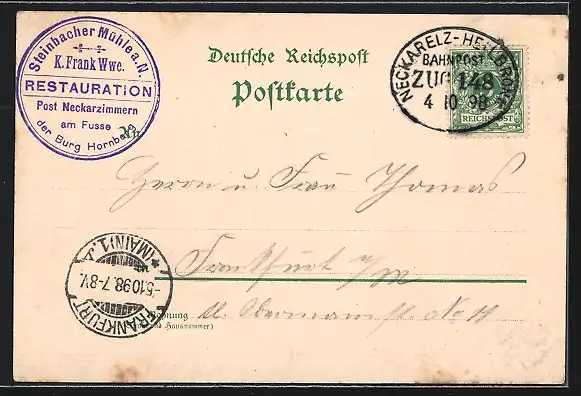 Steinbacher Mühle a. N.
K. Frank Wwe.
RESTAURATION
Post Neckarzimmern
am Fusse
der Burg Hornberg
Deutsche Reichspost
Postkarte
NECKARELZ-HEILBRONN
BAHNPOST
ZUG 148
4 10 98
REICHSPOST
An
Herrn u. Frau Thomas
Frankfurt a/M
Wohnung
(Straße und Hausnummer)
Kl. Obermainstr. No 11
FRANKFURT (MAIN) 1.
-5.10.98.7-8V.